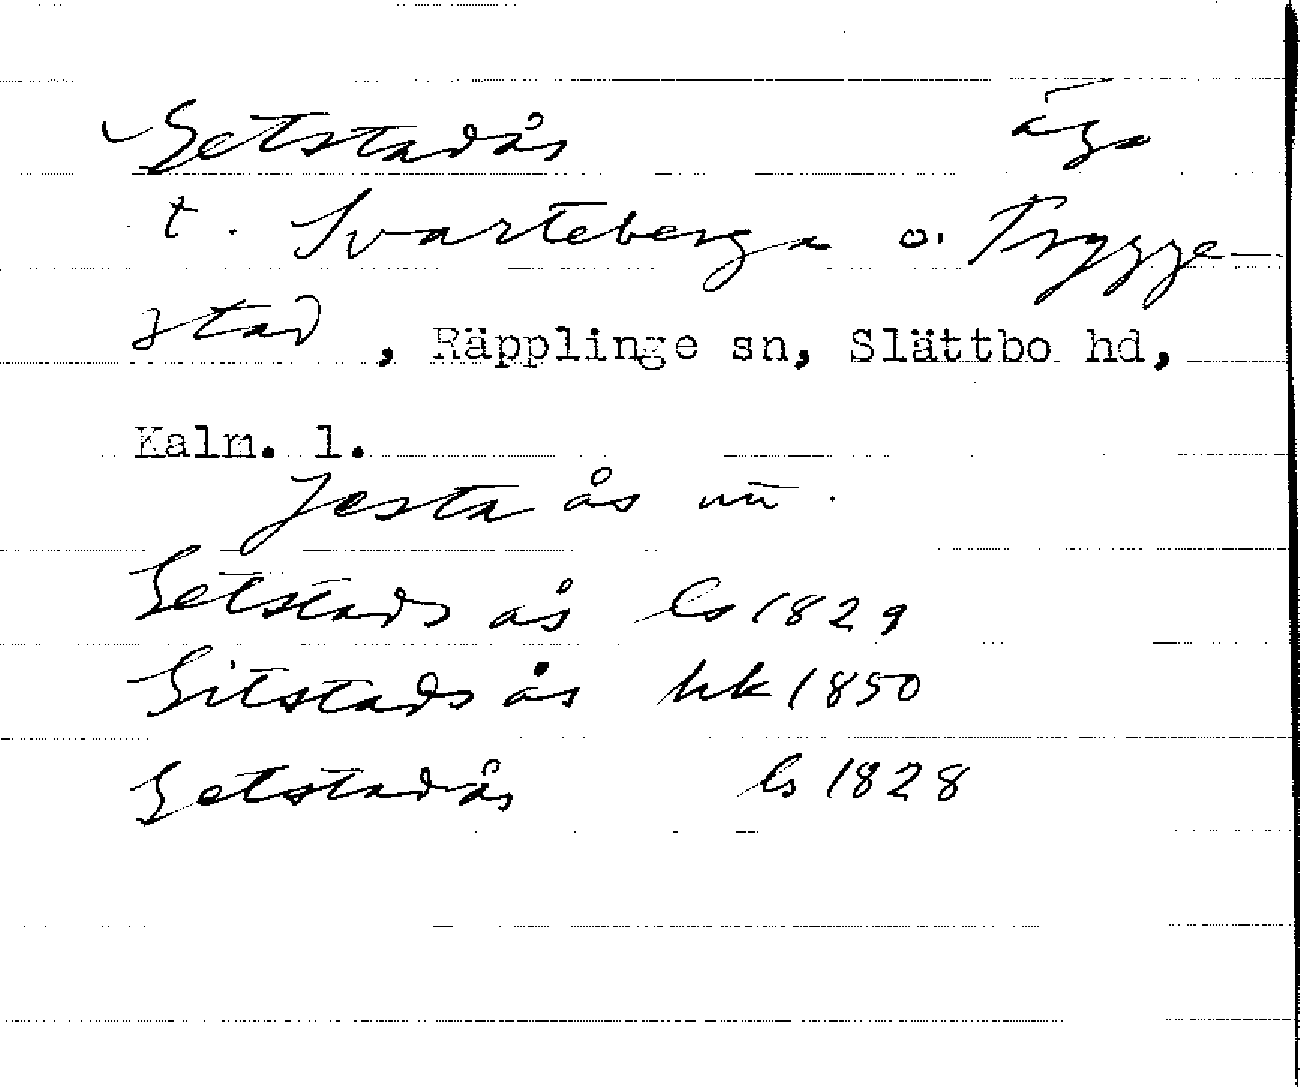 Getstadås äga
t. Svarteberga o. Trygge-
stad, Räpplinge sn, Slättbo hd,
Kalm. l.
Jesta ås
Getstads ås ls 1829
Gitstads ås hk 1850
Getstadås ls 1828